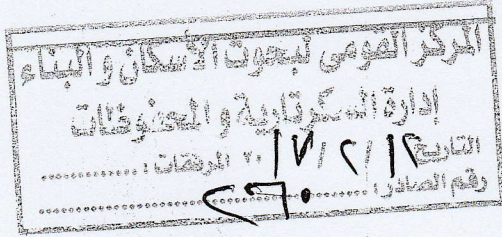 المركز القومى لبحوث الأسكان و البناء
إدارة السكرتارية و المحفوظات
التاريخ ١٢ / ٢ / ٢٠١٧ المرفقات : ............
رقم الصادر: ٢٦٠